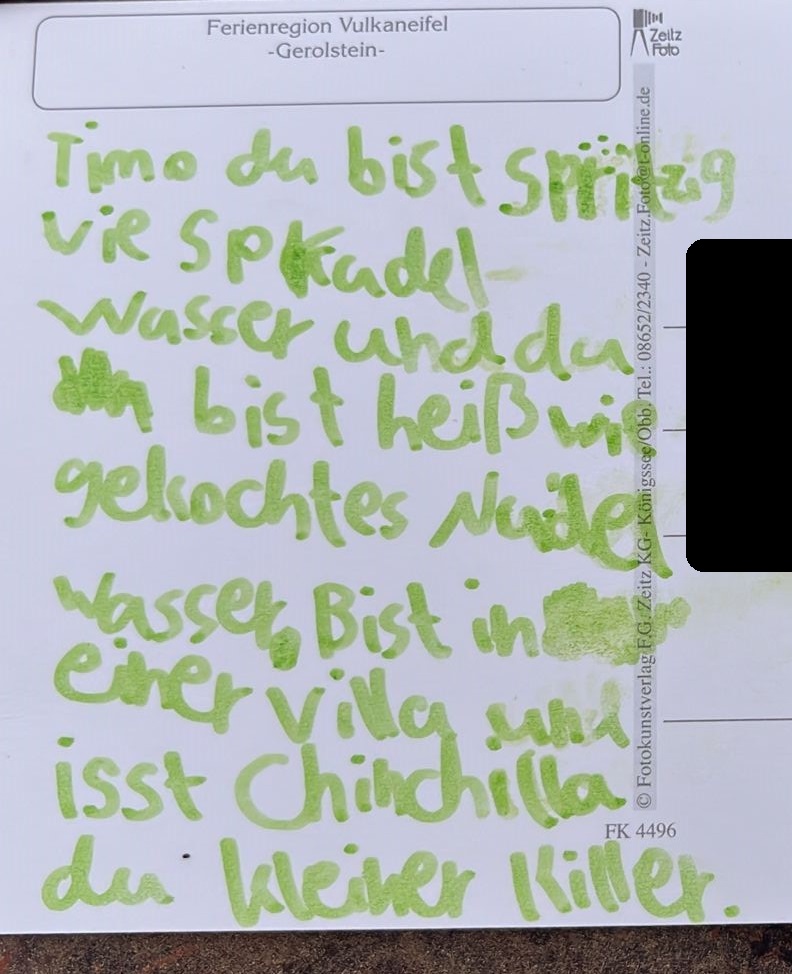 Ferienregion Vulkaneifel
-Gerolstein-
Zeitz
Foto
Timo du bist spritzig
vie Spkudel-
wasser und du
bist heiß wie
gekochtes Nudel
wasser, Bist in
einer Villa und
isst Chinchilla
du kleiner Killer.
© Fotokunstverlag F.G. Zeitz KG- Königssee/Obb. Tel.: 08652/2340 - Zeitz.Foto@t-online.de
FK 4496